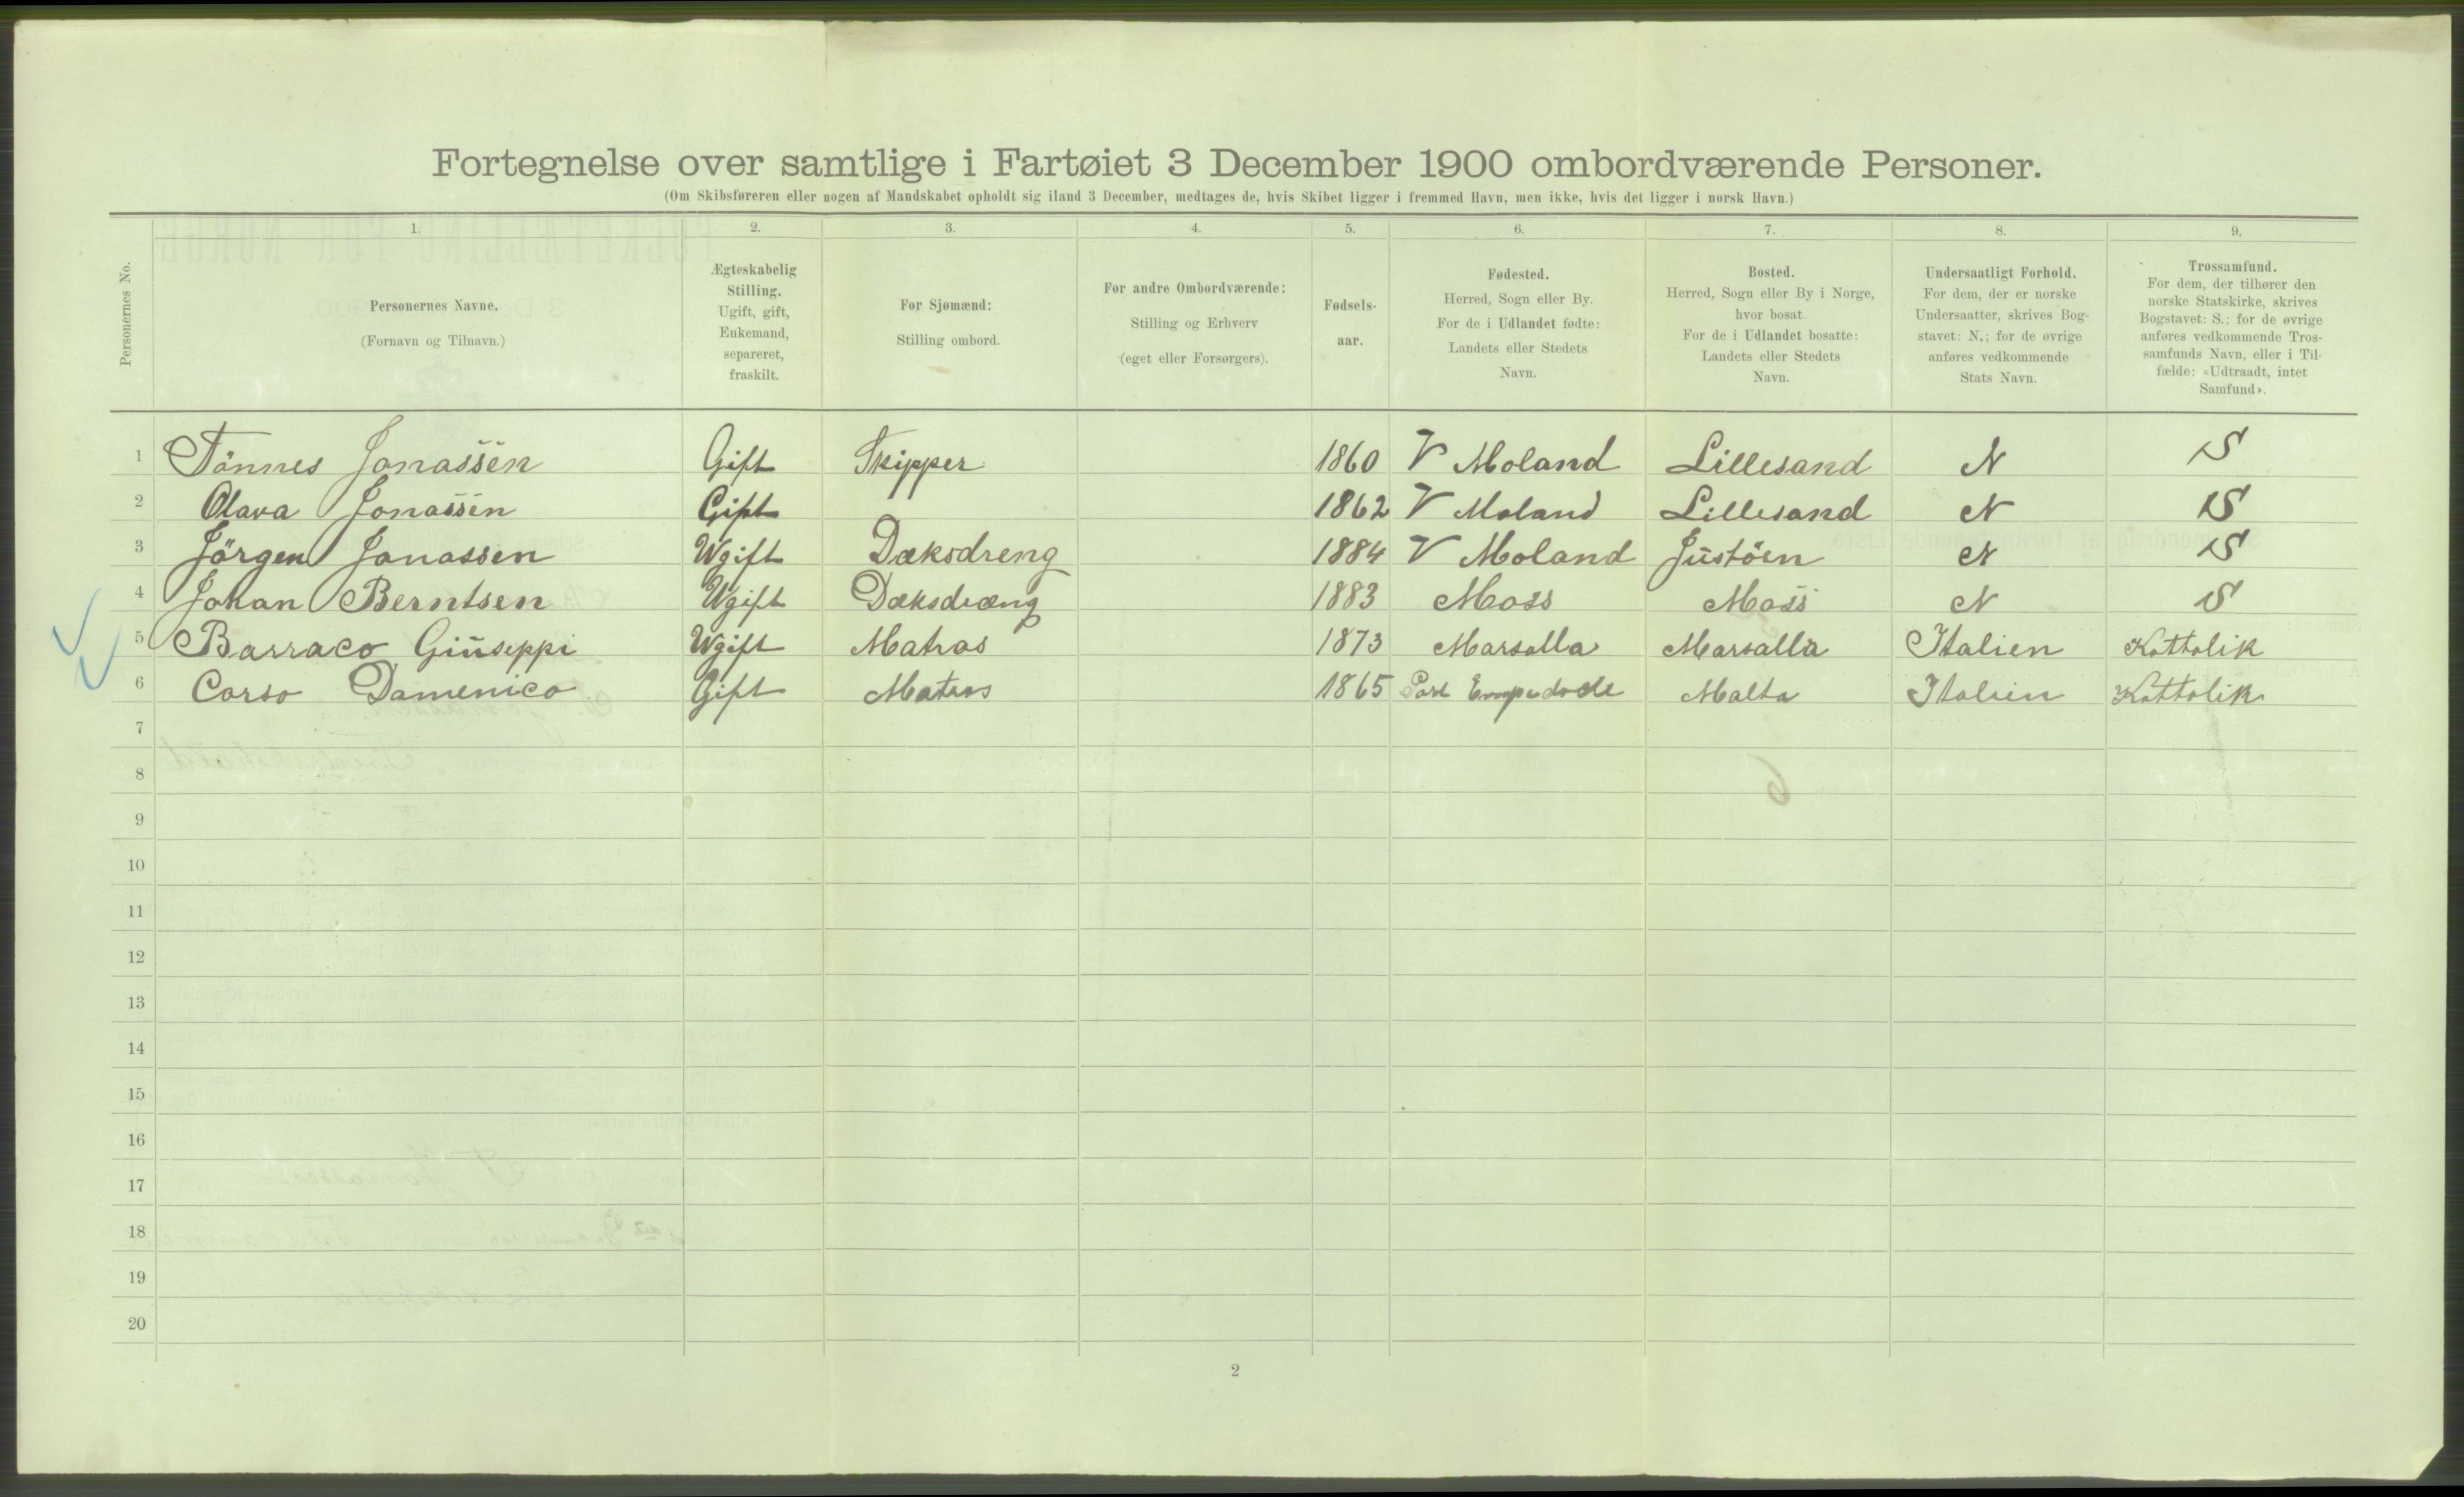 Fortegnelse over samtlige i Fartøiet 3 December 1900 ombordværende Personer.
(Om Skibsføreren eller nogen af Mandskabet opholdt sig iland 3 December, medtages de, hvis Skibet ligger i fremmed Havn, men ikke, hvis det ligger i norsk Havn.)
Personernes No.
1.
Personernes Navne.
(Fornavn og Tilnavn.)
2.
Ægteskabelig
Stilling.
Ugift, gift,
Enkemand,
separeret,
fraskilt.
3.
For Sjømænd:
Stilling ombord.
4.
For andre Ombordværende:
Stilling og Erhverv
(eget eller Forsørgers).
5.
Fødsels-
aar.
6.
Fødested.
Herred, Sogn eller By.
For de i Udlandet fødte:
Landets eller Stedets
Navn.
7.
Bosted.
Herred, Sogn eller By i Norge,
hvor bosat
For de i Udlandet bosatte:
Landets eller Stedets
Navn.
8.
Undersaatligt Forhold.
For dem, der er norske
Undersaatter, skrives Bog-
stavet: N.; for de øvrige
anføres vedkommende
Stats Navn.
9.
Trossamfund.
For dem, der tilhører den
norske Statskirke, skrives
Bogstavet: S.; for de øvrige
anføres vedkommende Tros-
samfunds Navn, eller i Til-
fælde: «Udtraadt, intet
Samfund».
1 Tönnes Jonassen Gift Skipper 1860 V Moland Lillesand N S
2 Olava Jonassen Gift 1862 V Moland Lillesand N S
3 Jörgen Jonassen Ugift Dæksdreng 1884 V Moland Justöen N S
4 Johan Berntsen Ugift Dæksdræng 1883 Moss Moss N S
5 Barraco Giuseppi Ugift Matras 1873 Marsalla Marsalla Italien Kattolik
6 Corso Damenico Gift Matros 1865 Port Empedocle Malta Italien Kattolik
7
8
9
10
11
12
13
14
15
16
17
18
19
20
2